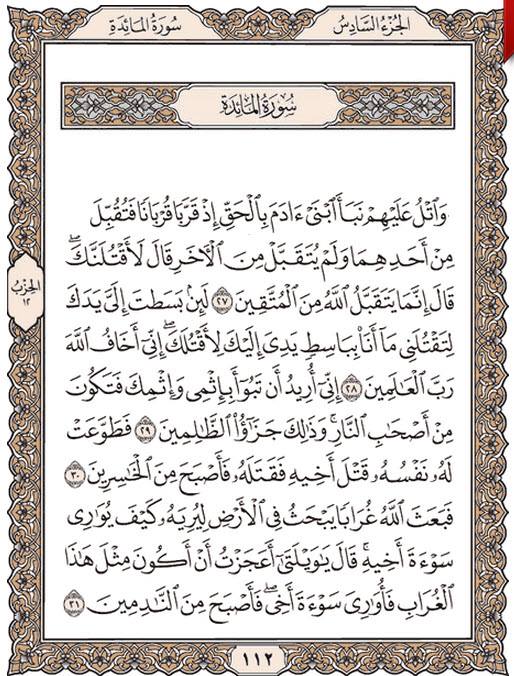 الجُزْءُ السَّادِسُ
سُورَةُ المَائِدَةِ
سُورَةُ المَائِدَةِ
وَٱتْلُ عَلَيْهِمْ نَبَأَ ٱبْنَىْ ءَادَمَ بِٱلْحَقِّ إِذْ قَرَّبَا قُرْبَانًا فَتُقُبِّلَ
مِنْ أَحَدِهِمَا وَلَمْ يُتَقَبَّلْ مِنَ ٱلْأَخَرِ قَالَ لَأَقْتُلَنَّكَ ۖ
قَالَ إِنَّمَا يَتَقَبَّلُ ٱللَّهُ مِنَ ٱلْمُتَّقِينَ ٢٧ لَئِنۢ بَسَطتَ إِلَىَّ يَدَكَ
لِتَقْتُلَنِى مَآ أَنَا۠ بِبَاسِطٍ يَدِىَ إِلَيْكَ لِأَقْتُلَكَ ۖ إِنِّىٓ أَخَافُ ٱللَّهَ
رَبَّ ٱلْعَـٰلَمِينَ ٢٨ إِنِّىٓ أُرِيدُ أَن تَبُوٓأَ بِإِثْمِى وَإِثْمِكَ فَتَكُونَ
مِنْ أَصْحَـٰبِ ٱلنَّارِ ۚ وَذَٰلِكَ جَزَٰٓؤُا۟ ٱلظَّـٰلِمِينَ ٢٩ فَطَوَّعَتْ
لَهُۥ نَفْسُهُۥ قَتْلَ أَخِيهِ فَقَتَلَهُۥ فَأَصْبَحَ مِنَ ٱلْخَـٰسِرِينَ ٣٠
فَبَعَثَ ٱللَّهُ غُرَابًا يَبْحَثُ فِى ٱلْأَرْضِ لِيُرِيَهُۥ كَيْفَ يُوَٰرِى
سَوْءَةَ أَخِيهِ ۚ قَالَ يَـٰوَيْلَتَىٰٓ أَعَجَزْتُ أَنْ أَكُونَ مِثْلَ هَـٰذَا
ٱلْغُرَابِ فَأُوَٰرِىَ سَوْءَةَ أَخِى ۖ فَأَصْبَحَ مِنَ ٱلنَّـٰدِمِينَ ٣١
الحِزْبُ
١٢
١١٢